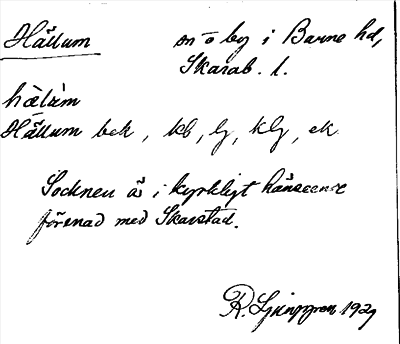 Hällum sn o by i Barne hd,
Skarab. l.
hàlúm
Hällum bek, kb, lj, klj, ek
Socknen är i kyrkligt hänseende
förenad med Skarstad.
R. Ljunggren 1929